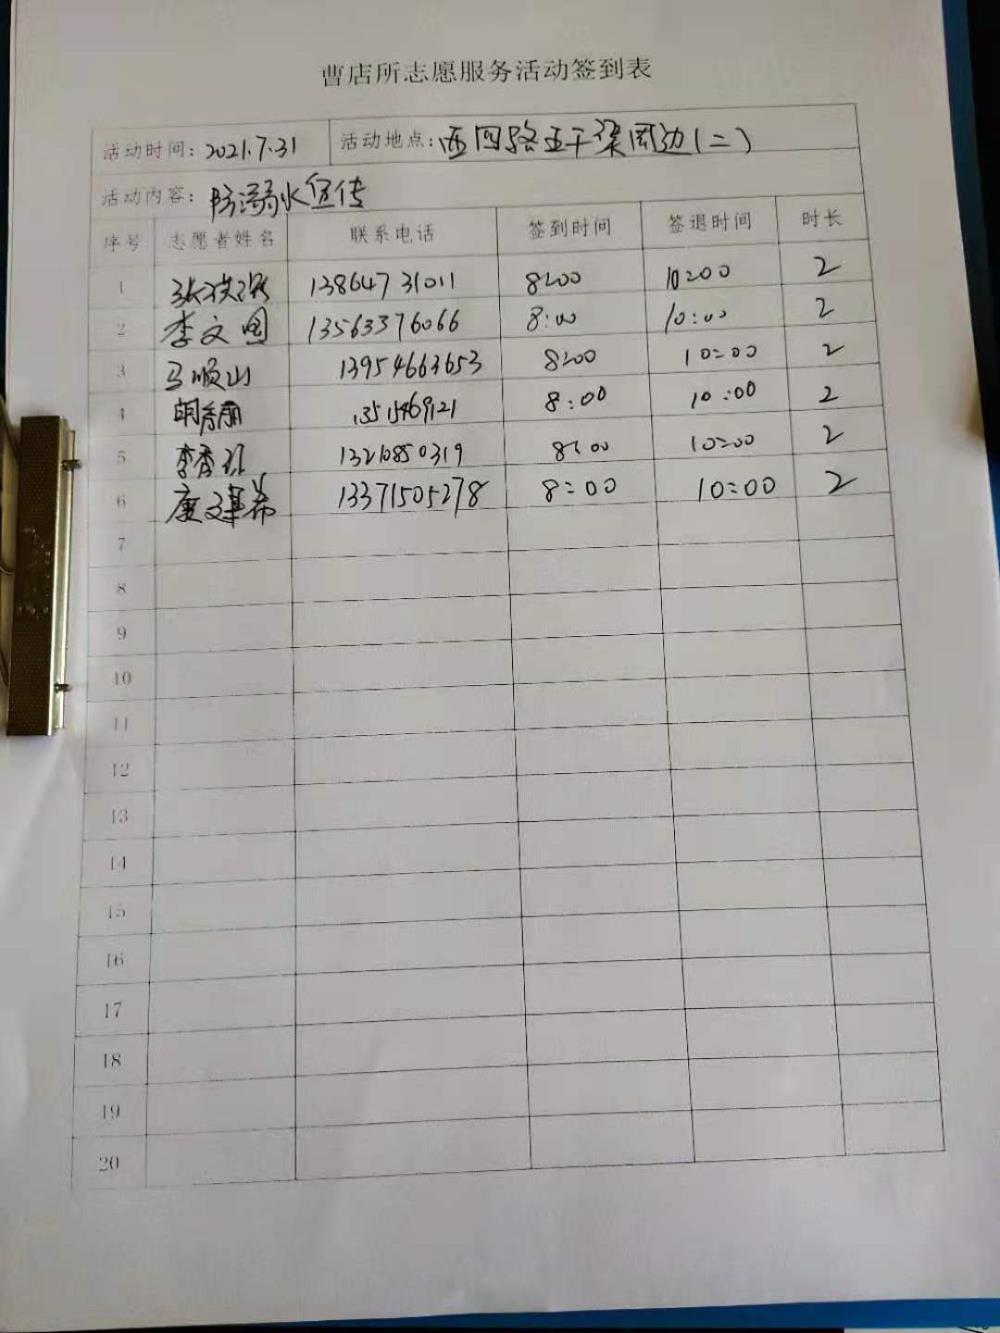 曹店所志愿服务活动签到表
活动时间: 2021.7.31 活动地点: 西四路五干渠周边(二)
活动内容: 防溺水宣传
序号 志愿者姓名 联系电话 签到时间 签退时间 时长
1 13864731011 8:00 10:00 2
2 李文图 13563376066 8:00 10:00 2
3 马顺山 13954663653 8:00 10:00 2
4 胡秀丽 8:00 10:00 2
5 李秀 13210850319 8:00 10:00 2
6 13371505278 8:00 10:00 2
7
8
9
10
11
12
13
14
15
16
17
18
19
20